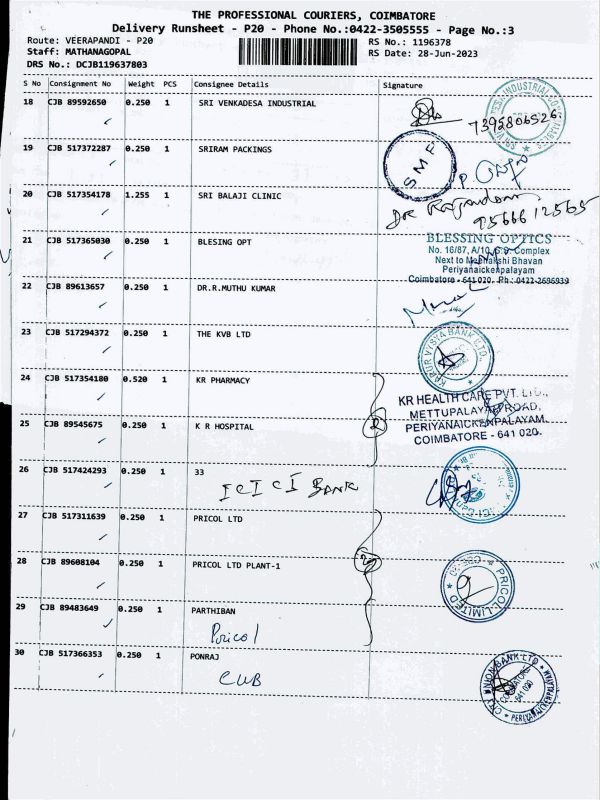 THE PROFESSIONAL COURIERS, COIMBATORE
Delivery Runsheet - P20 - Phone No.:0422-3505555 - Page No.:3
Route: VEERAPANDI - P20
RS No.: 1196378
Staff: MATHANAGOPAL
RS Date: 28-Jun-2023
DRS No.: DCJB119637803
S No Consignment No Weight PCS Consignee Details Signature
18 CJB 89592650 0.250 1 SRI VENKADESA INDUSTRIAL
7395806526.
19 CJB 517372287 0.250 1 SRIRAM PACKINGS
SMF
20 CJB 517354178 1.255 1 SRI BALAJI CLINIC
9566612565
21 CJB 517365030 0.250 1 BLESING OPT
BLESSING OPTICS
No. 16/87, A/10, S.S. Complex
Next to Meenakshi Bhavan
Periyanaickenpalayam
Coimbatore - 641 020. Ph.: 0422-2696939
22 CJB 89613657 0.250 1 DR.R.MUTHU KUMAR
23 CJB 517294372 0.250 1 THE KVB LTD
KARUR VYSYA BANK LTD.
24 CJB 517354180 0.520 1 KR PHARMACY
KR HEALTH CARE PVT. LTD.,
METTUPALAYAM ROAD,
PERIYANAICKENPALAYAM,
COIMBATORE - 641 020.
25 CJB 89545675 0.250 1 K R HOSPITAL
2
26 CJB 517424293 0.250 1 33
ICICI BANK
27 CJB 517311639 0.250 1 PRICOL LTD
28 CJB 89608104 0.250 1 PRICOL LTD PLANT-1
PRICOL LIMITED
29 CJB 89483649 0.250 1 PARTHIBAN
Pricol
30 CJB 517366353 0.250 1 PONRAJ
CUB
CITY UNION BANK LTD
COIMBATORE
641 020